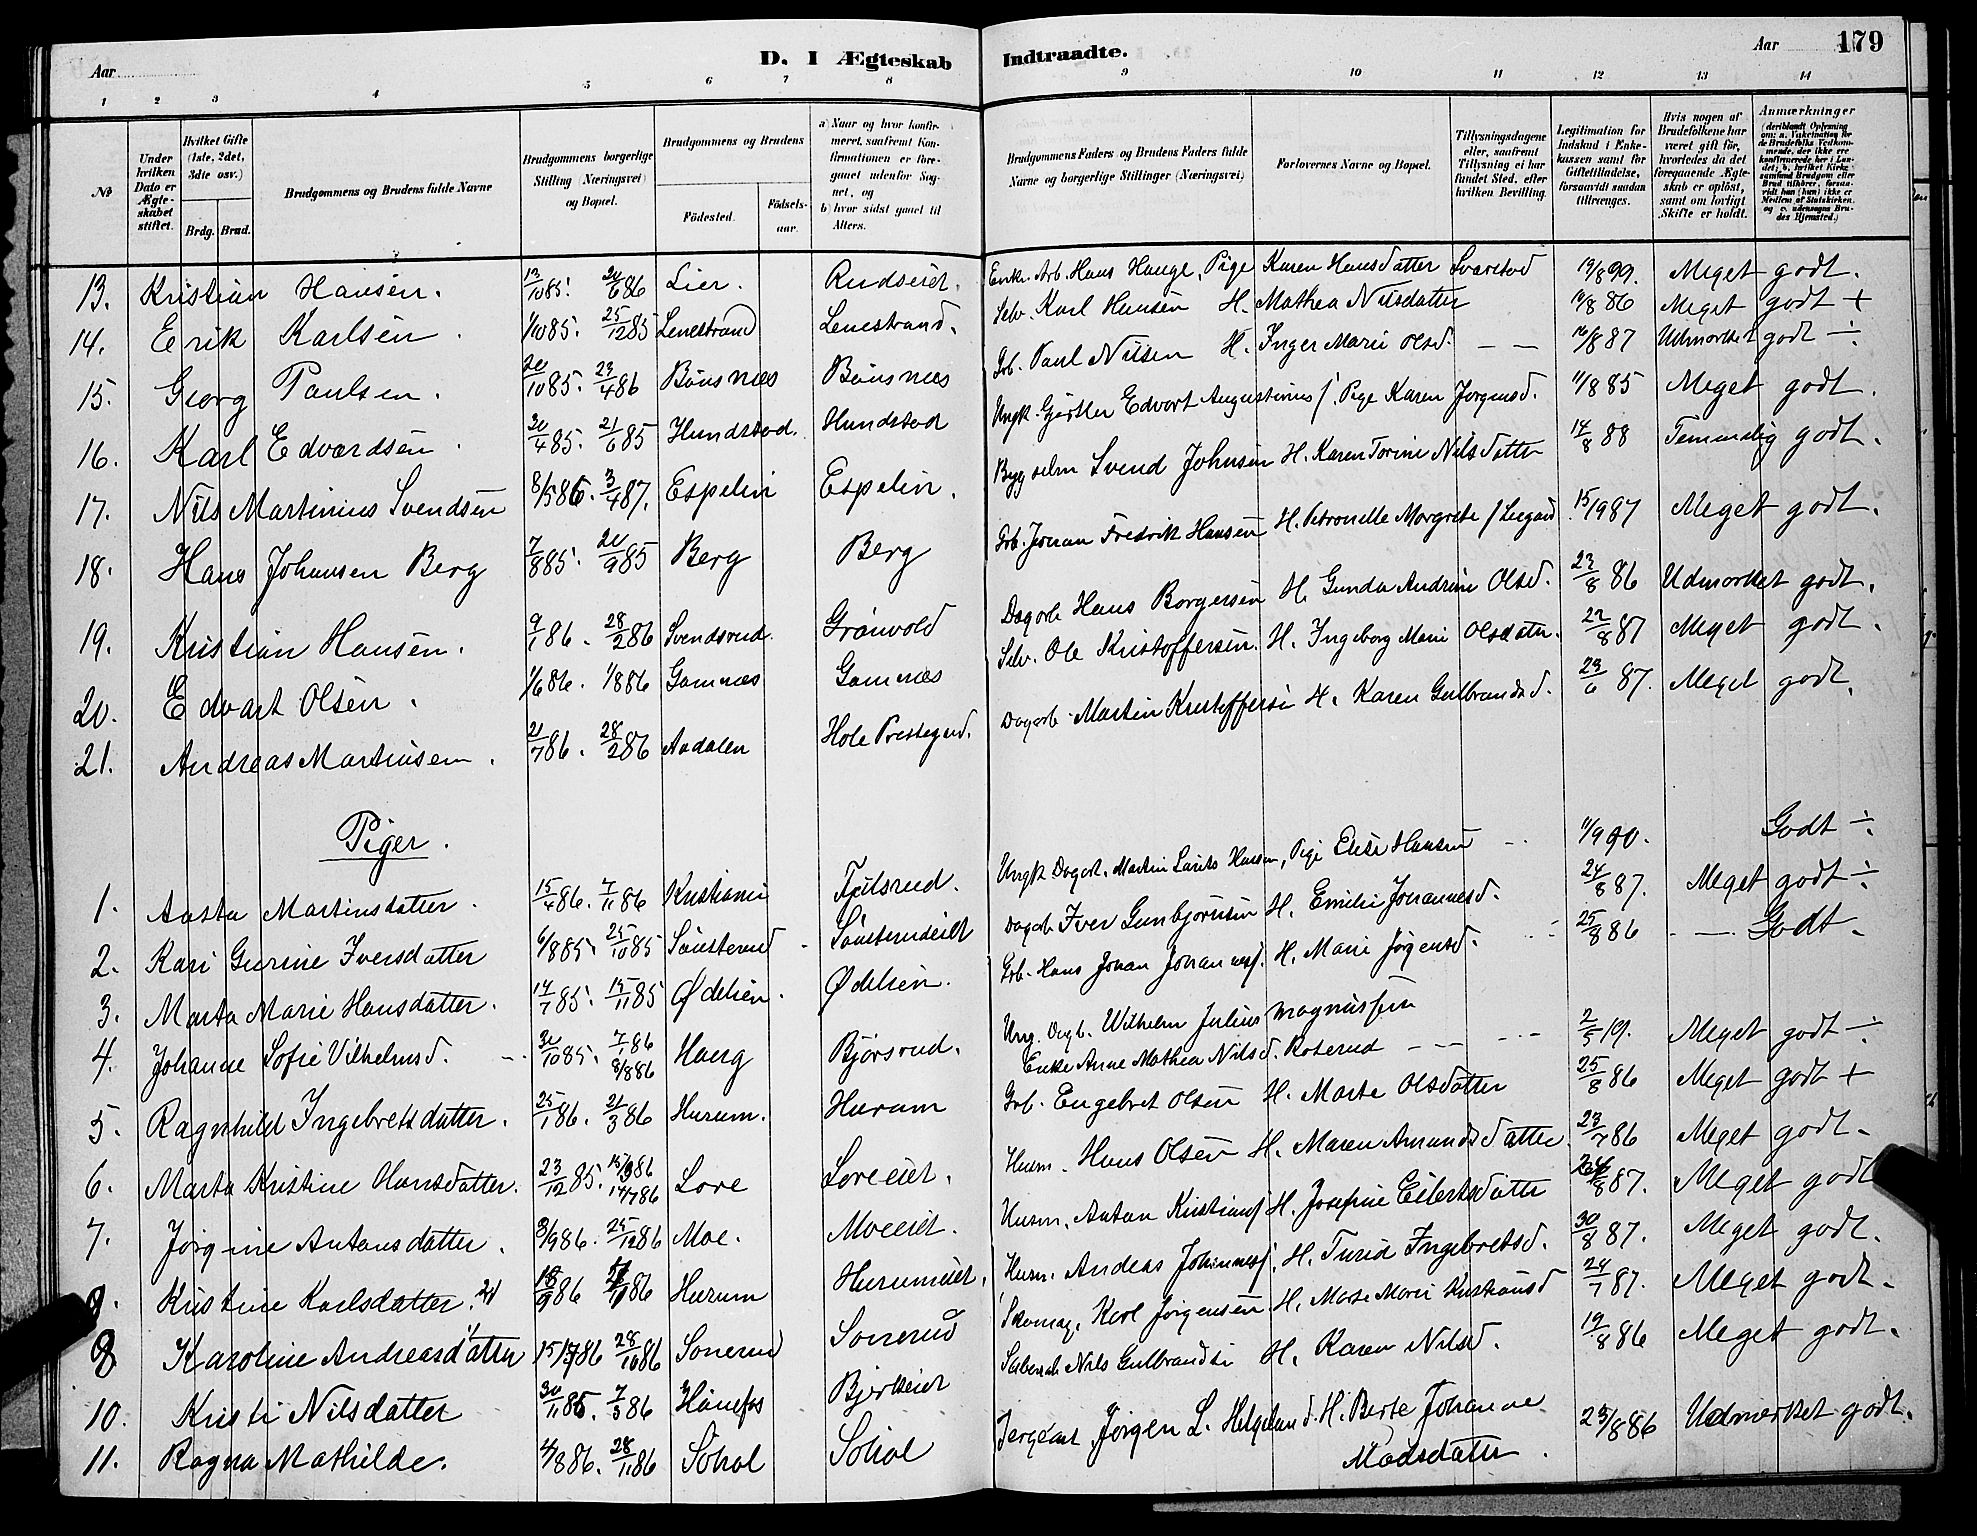 Aar
D. I Ægteskab
Indtraadte.
Aar
179
1 2 3 4 5 6 7 8 9 10 11 12 13 14
№
Under hvilken Dato er Ægteskabet stiftet.
Hvilket Gifte (1ste, 2det, 3die osv.)
Brdg. Brud.
Brudgommens og Brudens fulde Navne
Brudgommens borgerlige Stilling (Næringsvei) og Bopæl.
Brudgommens og Brudens
Fødested.
Fødselsaar.
a) Naar og hvor konfirmeret, saafremt Konfirmationen er foregaaet udenfor Sognet, og
b) hvor sidst gaaet til Alters.
Brudgommens Faders og Brudens Faders fulde Navne og borgerlige Stillinger (Næringsvei)
Forlovernes Navne og Bopæl.
Tillysningsdagene eller, saafremt Tillysning ei har fundet Sted, efter hvilken Bevilling.
Legitimation for Indskud i Enkekassen samt for Giftetilladelse, forsaavidt saadan tiltrænges.
Hvis nogen af Brudefolkene har været gift før, hvorledes da det foregaaende Ægteskab er opløst, samt om lovligt Skifte er holdt.
Anmærkninger
(deriblandt Oplysning om: a. Vakcination for de Brudefolks Vedkommende, der ikke ere konfirmerede her i Landet; b. hvilket Kirkesamfund Brudgom eller Brud tilhører, forsaavidt han (hun) ikke er Medlem af Statskirken, og c. udensogns Brudes Hjemsted.)
13. Kristian Hansen. 13/10 85. 20/6 86 Lier. Rudseiet. Enkem. Arb. Hans Hauge, Pige Karen Hansdatter Svarstad 19/8 99. Meget godt.
14. Erik Karlsen. 1/10 85. 25/12 85 Lenestrand Lenestrand. Selv. Karl Hansen H. Mathea Nilsdatter 16/8 86 Meget godt +
15. Georg Paulsen. 20/10 85. 23/4 86 Bønsnæs Bønsnæs Grb. Paul Nilsen H. Inger Marie Olsd. — — 16/8 87 Udmærket godt ÷
16. Karl Edvardsen. 30/4 85. 21/6 85 Hundstad. Hundstad Ungk. Gjørtler Edvart Augustinius f. Pige Karen Jørgensd. 11/8 85 Meget godt.
17. Nils Martinius Svendsen 8/5 86. 3/4 87. Espelin Espelin. Bygselm Svend Johnsen H. Karen Torine Nilsdatter 14/8 88 Temmelig godt.
18. Hans Johansen Berg 7/8 85. 20/9 85 Berg Berg Grb. Johan Fredrik Hansen H. Petronelle Margrete 15/9 87 Meget godt.
19. Kristian Hansen. 9/1 86. 28/2 86 Svendsrud. Grønvold Dagarb Hans Borgersen H. Gunda Andrine Olsd. 23/8 86 Udmærket godt.
20. Edvart Olsen. 1/6 86. 1/8 86 Gamnæs Gomnæs Selv. Ole Kristoffersen. H. Ingeborg Marie Olsdatter. 22/8 87 Meget godt.
21. Andreas Martinsen. 21/7 86. 28/2 86 Aadalen Hole Prestegrd. Dagarb. Martin Kristoffersen H. Karen Gulbrandsd. 23/6 87. Meget godt.
Piger.
1. Aasta Martinsdatter. 15/4 86. 7/11 86 Kristiania Fjulsrud. Ungk Dagarb. Martin Laurits Hansen, Pige Elise Hansen 11/9 90. Godt ÷
2. Kari Gurine Iversdatter 6/8 85. 25/10 85 Sønsterud Sønsterudeiet Dagarb Iver Gunbjørnsen H. Emilie Johannesd. 24/8 87. Meget godt ÷
3. Marta Marie Hansdatter. 14/7 85. 15/11 85 Ødelien. Ødelien. Grb. Hans Johan Johannesf. H. Marie Jørgensd. 25/8 86 Godt.
4. Johanne Sofie Vilhelmsd. 30/10 85. 7/1 86 8/8 86 Haug Bjørsrud. Ung. Dagb. Wilhelm Julius Magnussen
Enke Anne Mathea Nilsd. Roterud 2/5 19. Meget godt ÷
5. Ragnhild Ingebretsdatter. 25/1 86. 21/3 86 Hurum. Hurum Grb. Engebret Olsen H. Marte Olsdatter 25/8 86 Meget godt +
6. Marta Kristine Hansdatter. 23/12 85. 14/7 86 Lore Loreeiet. Husm. Hans Olsen H. Maren Amundsdatter 23/7 86 Meget godt.
7. Jørgine Antonsdatter. 3/9 86. 25/12 86 Moe. Moeeiet. Husm. Anton Kristiansf. H. Josefine Eilertsdatter 24/8 87. Meget godt
9. Kristine Karlsdatter. 86 86 Hurum Hurumeiet. Husm. Andreas Johannesf. H. Turid Ingebretsd. 30/8 87. Meget godt.
8 Karoline Andreasdatter 86 28/10 86 Sonerud Sonerud Skomag. Karl Jørgensen H. Marte Marie Kristiansd 24/7 87. Meget godt.
10. Kristi Nilsdatter 30/11 85. 7/3 86 Hønefos Bjerkeiet Nils Gulbrandsen H. Karen Nilsd. 19/8 86 Meget godt.
11. Ragna Mathilde. 4/8 86. 28/11 86 Sohol Sohol Sergeant Jørgen L. Helgeland. H. Berte Johanne 23/8 86 Udmærket godt.
Madsdatter.